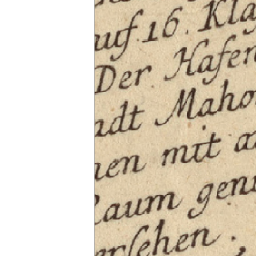 auf 16. Kla
Der Hafen
adt Maho
nen mit a
Raum gen
ersehen.